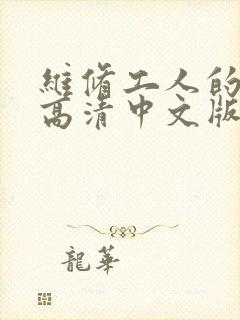 維脩工人的
高清中文版
龍華